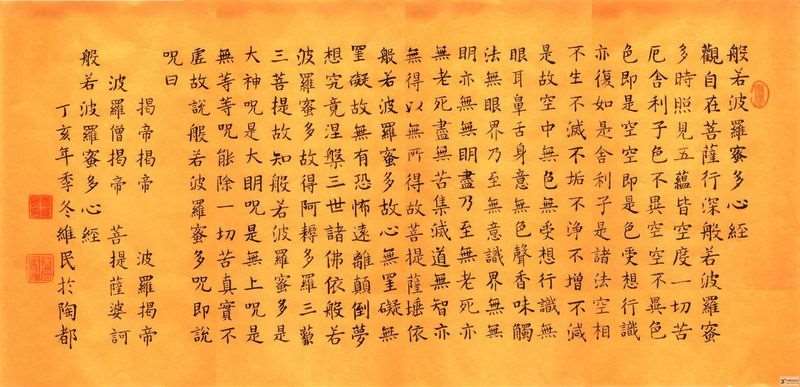 般若波羅蜜多心經
觀自在菩薩行深般若波羅蜜
多時照見五蘊皆空度一切苦
厄舍利子色不異空空不異色
色即是空空即是色受想行識
亦復如是舍利子是諸法空相
不生不滅不垢不淨不增不減
是故空中無色無受想行識無
眼耳鼻舌身意無色聲香味觸
法無眼界乃至無意識界無無
明亦無無明盡乃至無老死亦
無老死盡無苦集滅道無智亦
無得以無所得故菩提薩埵依
般若波羅蜜多故心無罣礙無
罣礙故無有恐怖遠離顛倒夢
想究竟涅槃三世諸佛依般若
波羅蜜多故得阿耨多羅三藐
三菩提故知般若波羅蜜多是
大神呪是大明呪是無上呪是
無等等呪能除一切苦真實不
虛故說般若波羅蜜多呪即說
呪曰
揭帝揭帝 波羅揭帝
波羅僧揭帝 菩提薩婆訶
般若波羅蜜多心經
丁亥年季冬維民於陶都